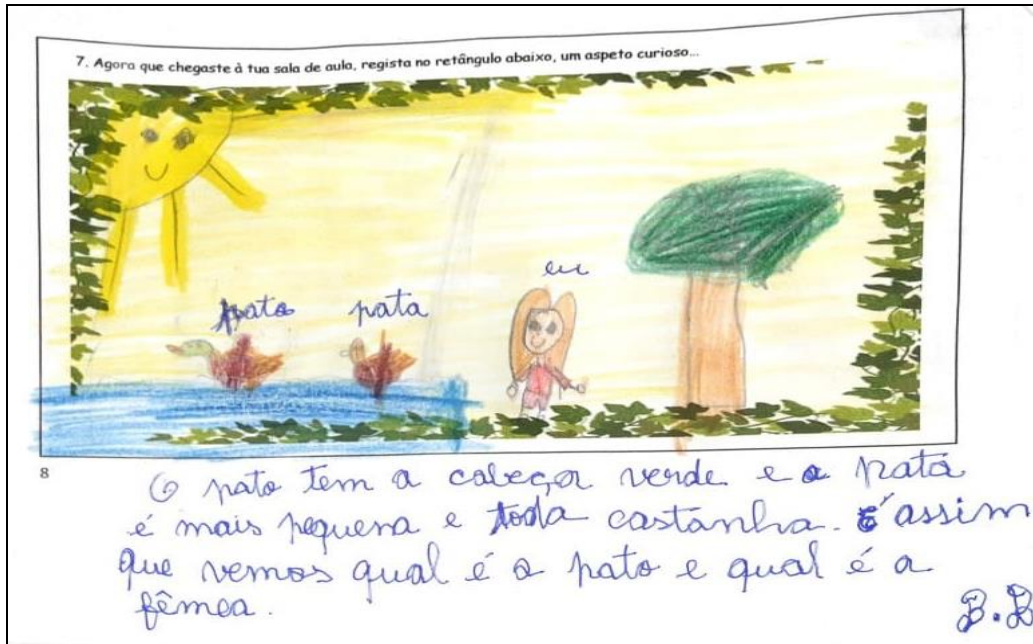 7. Agora que chegaste à tua sala de aula, regista no retângulo abaixo, um aspeto curioso...
eu
pato pata
8
O pato tem a cabeça verde e a pata
é mais pequena e toda castanha. É assim
que vemos qual é o pato e qual é a
fêmea.
B.B